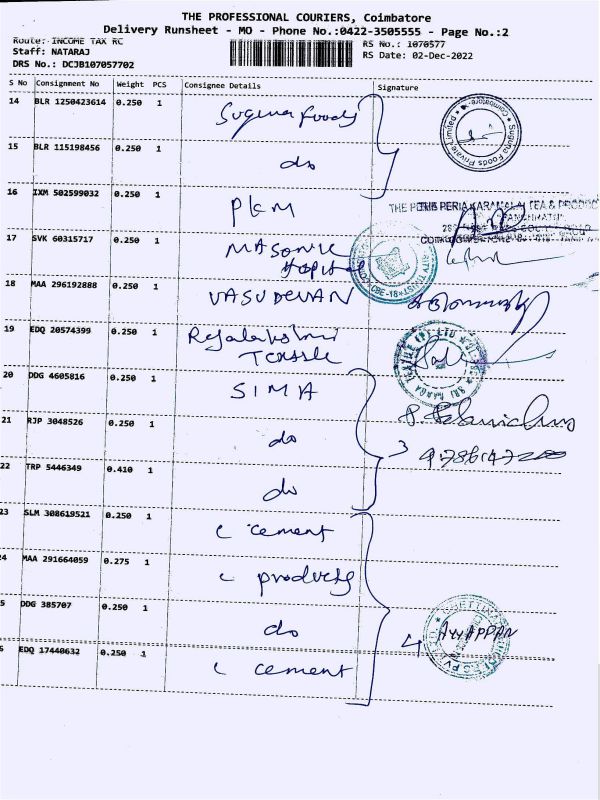 THE PROFESSIONAL COURIERS, Coimbatore
Delivery Runsheet - MO - Phone No.:0422-3505555 - Page No.:2
Route: INCOME TAX RC
RS No.: 1070577
Staff: NATARAJ
RS Date: 02-Dec-2022
DRS No.: DCJB107057702
S No Consignment No Weight PCS Consignee Details Signature
14 BLR 1250423614 0.250 1 Suguna foods
Suguna Foods Private Limited * Coimbatore *
15 BLR 115198456 0.250 1 do
16 IXM 502599032 0.250 1 PKM
17 SVK 60315717 0.250 1 MASONIC
Hospital
18 MAA 296192888 0.250 1 VASUDEVAN
19 EDQ 20574399 0.250 1 Rajalakshmi
Textile
20 DDG 4605816 0.250 1 SIMA
21 RJP 3048526 0.250 1 do
3
22 TRP 5446349 0.410 1 do
23 SLM 308619521 0.250 1 c cement
24 MAA 291664059 0.275 1 c products
5 DDG 385707 0.250 1 do
4 AYYAPPAN
6 EDQ 17440632 0.250 1 c cement